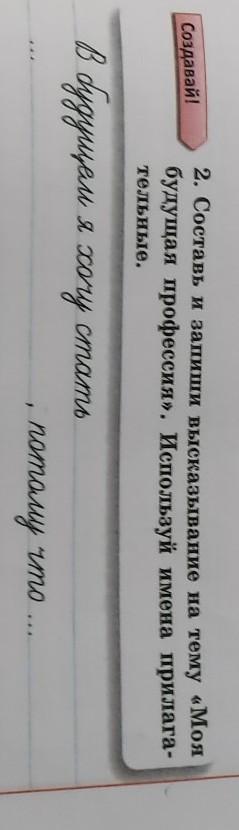 Создавай!
2. Составь и запиши высказывание на тему «Моя
будущая профессия». Используй имена прилага-
тельные.
В будущем я хочу стать
... , потому что ...